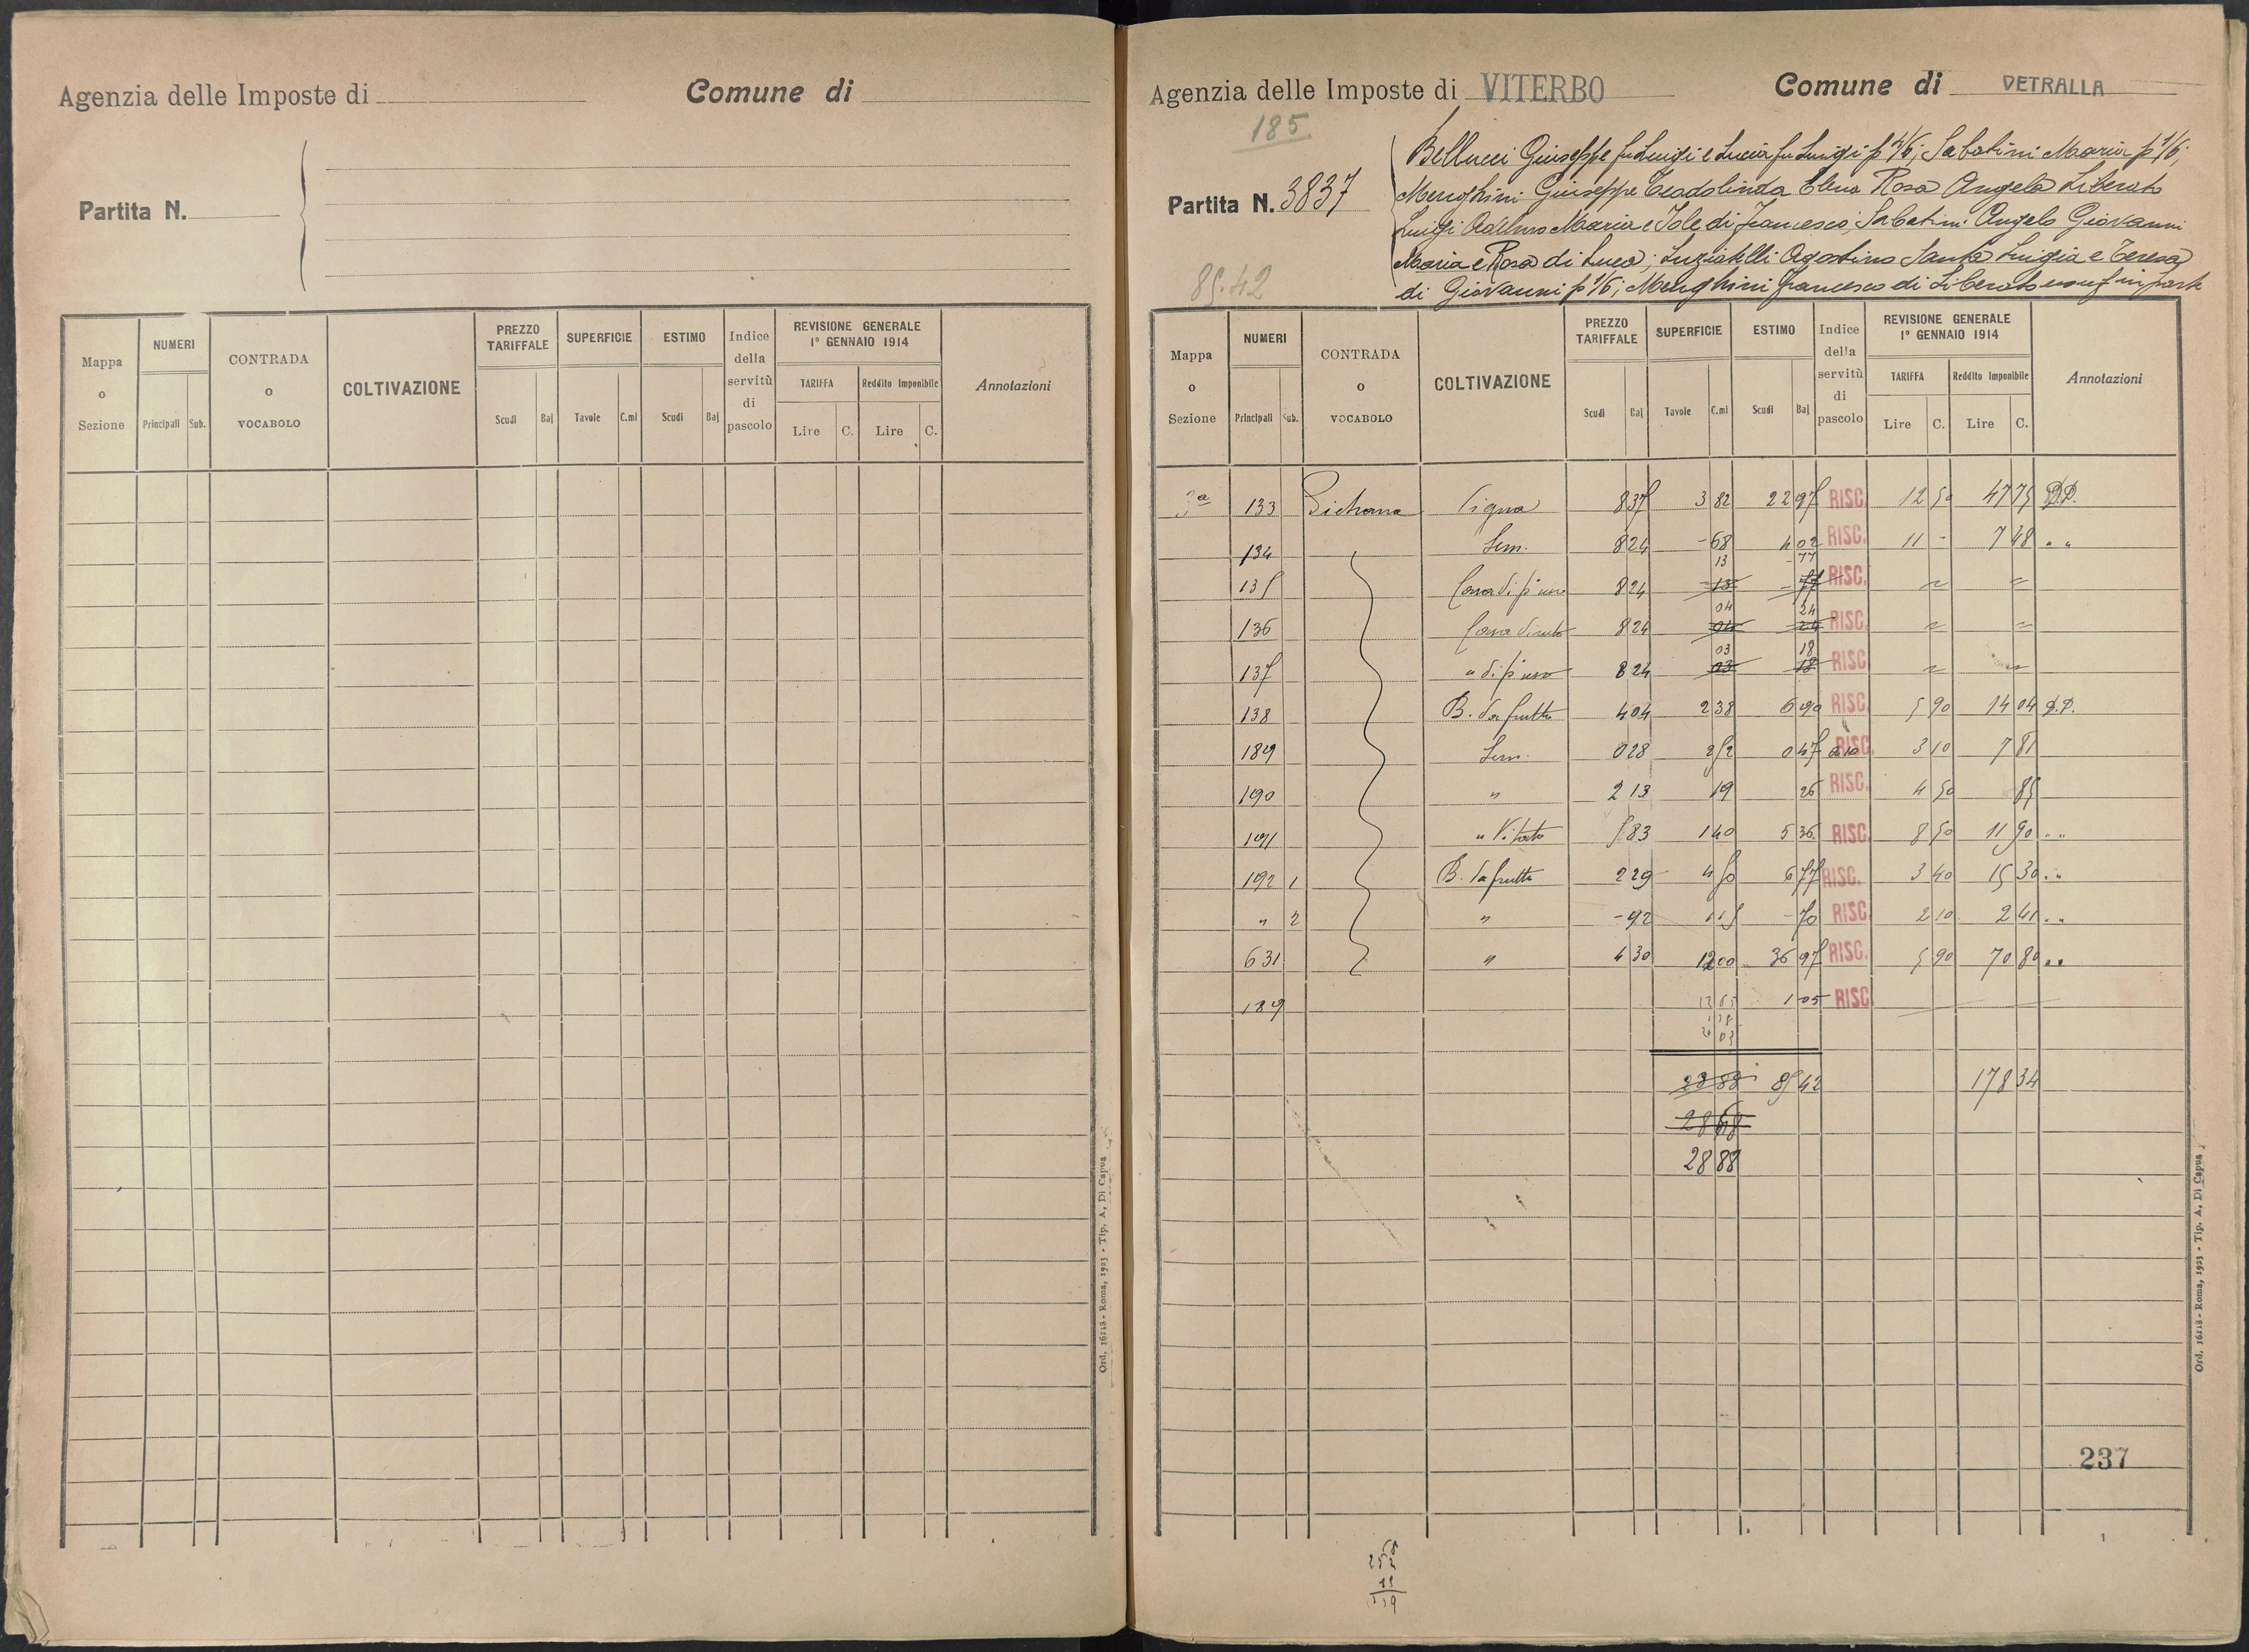 Agenzia delle Imposte di
Comune di
Partita N.
Mappa o Sezione
NUMERI
Principali Sub.
CONTRADA o VOCABOLO
COLTIVAZIONE
PREZZO TARIFFALE
Scudi Baj
SUPERFICIE
Tavole C.mi
ESTIMO
Scudi Baj
Indice della servitù di pascolo
REVISIONE GENERALE
1° GENNAIO 1914
TARIFFA
Lire C.
Reddito Imponibile
Lire C.
Annotazioni
Ord. 16218 - Roma, 1923 - Tip. A. Di Capua
Agenzia delle Imposte di VITERBO
Comune di VETRALLA
185
Partita N. 3837
85.42
Bellucci Giuseppe fu Luigi e Lucia fu Luigi p 4/6; Sabatini Maria p 1/6;
Menghini Giuseppe Teadolinda Elena Rosa Angela Liberato
Luigi Adelmo Maria e Iole di Francesco; Sabatini Angelo Giovanni
Maria e Rosa di Luca; Luziatelli Agostino Santa Luigia e Teresa
di Giovanni p 1/6; Menghini Francesco di Liberato usuf in parte
Mappa o Sezione
NUMERI
Principali Sub.
CONTRADA o VOCABOLO
COLTIVAZIONE
PREZZO TARIFFALE
Scudi Baj
SUPERFICIE
Tavole C.mi
ESTIMO
Scudi Baj
Indice della servitù di pascolo
REVISIONE GENERALE
1° GENNAIO 1914
TARIFFA
Lire C.
Reddito Imponibile
Lire C.
Annotazioni
3a 133 Vigna 8 37 3 82 22 97 RISC. 12 50 47 75 D.P.
134 Sem. 8 24 - 68 4 02 RISC. 11 - 7 48 " "
13 - 77
135 Casa di p uso 8 24 - 13 - 77 RISC. = =
04 24
136 Casa diruta 8 24 04 24 RISC. = =
03 18
137 " di p uso 8 24 03 18 RISC. = =
138 B. da frutto 4 04 2 38 6 90 RISC. 5 90 14 04 D.P.
189 Sem. 0 28 2 52 0 47 RISC. 3 10 7 81
190 " 2 13 19 26 RISC. 4 50 85
191 " Vitato 5 83 1 40 5 36 RISC. 8 50 11 90 " "
192 1 B. da frutto 2 29 4 50 6 77 RISC. 3 40 15 30 " "
" 2 " - 92 1 15 - 70 RISC. 2 10 2 41 " "
631 " 4 30 12 00 36 97 RISC. 5 90 70 80 " "
189 1 05 RISC.
28 88 85 42 178 34
28 68
28 88
237
Ord. 16218 - Roma, 1923 - Tip. A. Di Capua